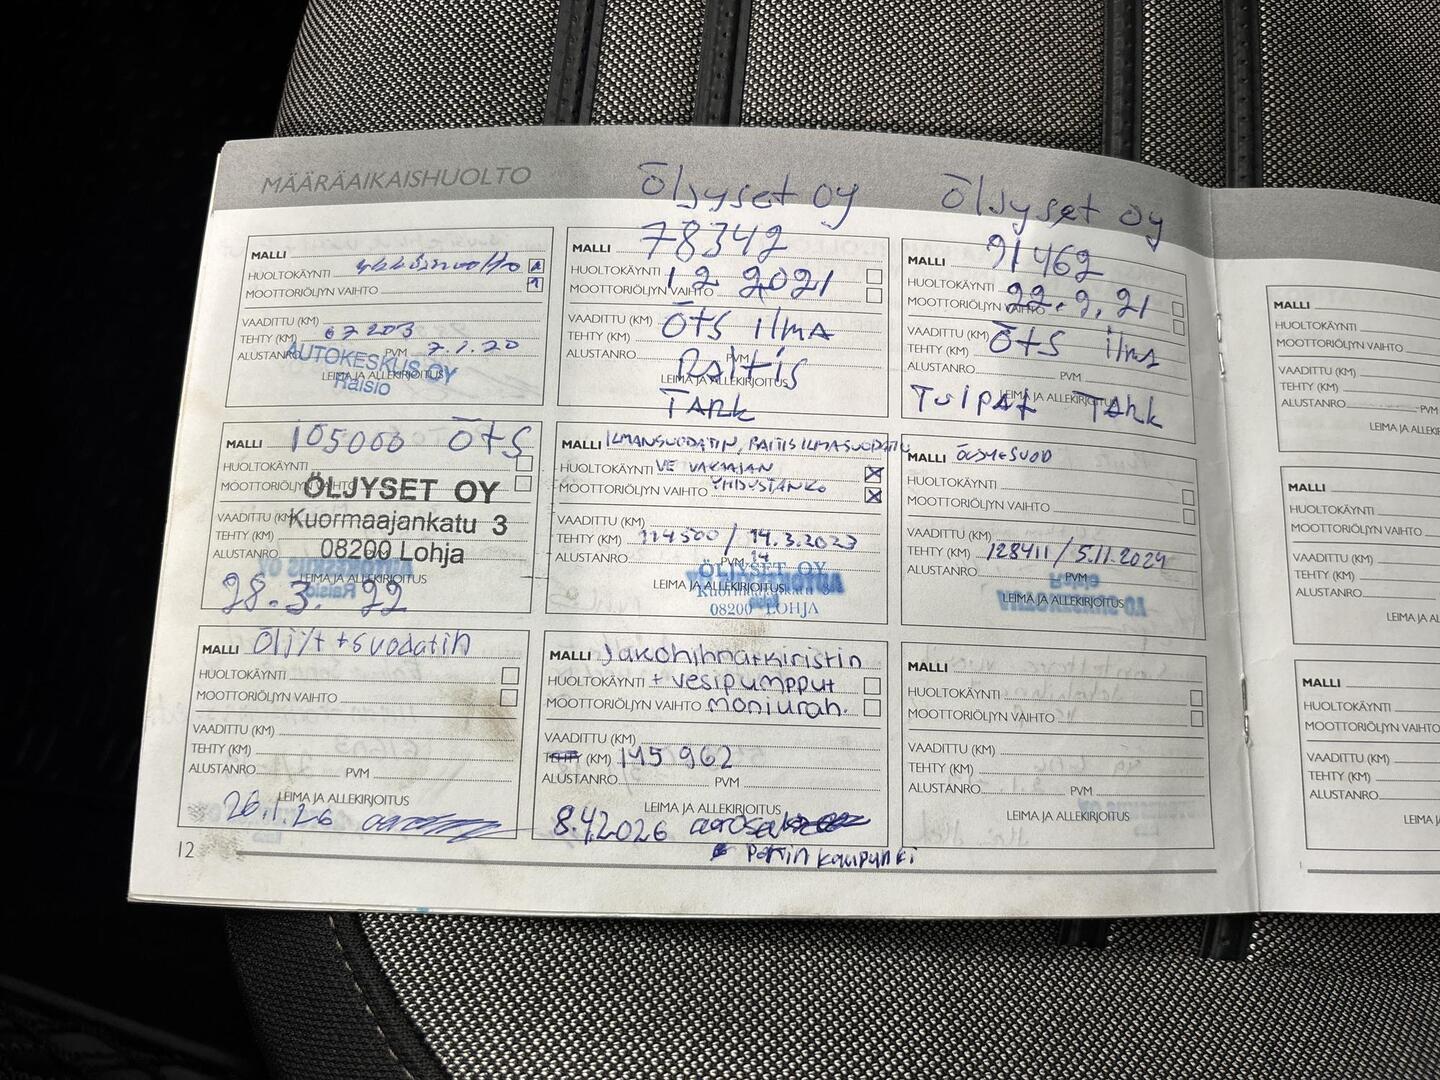 MÄÄRÄAIKAISHUOLTO
Öljyset oy
Öljyset oy
MALLI
HUOLTOKÄYNTI
MOOTTORIÖLJYN VAIHTO
VAADITTU (KM)
TEHTY (KM) 67203
ALUSTANRO PVM 7.1.20
LEIMA JA ALLEKIRJOITUS
AUTOKESKUS OY
Raisio
78342
MALLI
HUOLTOKÄYNTI 1 2 2021
MOOTTORIÖLJYN VAIHTO
VAADITTU (KM)
TEHTY (KM) ÖTS ILMA
ALUSTANRO PVM
Raitis
LEIMA JA ALLEKIRJOITUS
TANK
91462
MALLI
HUOLTOKÄYNTI
MOOTTORIÖLJYN VAIHTO 22.9.21
VAADITTU (KM)
TEHTY (KM) ÖTS ilma
ALUSTANRO PVM
LEIMA JA ALLEKIRJOITUS
Tulpat TANK
MALLI 105000 ÖTS
HUOLTOKÄYNTI
MOOTTORIÖLJYN VAIHTO
ÖLJYSET OY
VAADITTU (KM)
Kuormaajankatu 3
TEHTY (KM)
08200 Lohja
ALUSTANRO
LEIMA JA ALLEKIRJOITUS
28.3. 22
MALLI ILMANSUODATIN, RAITISILMASUODATIN
HUOLTOKÄYNTI VE VAKAAJAN
MOOTTORIÖLJYN VAIHTO YHDYSTANKO
VAADITTU (KM)
TEHTY (KM) 114500 / 14.3.2023
ALUSTANRO PVM 14
ÖLJYSET OY
LEIMA JA ALLEKIRJOITUS
Kuormaajankatu 3
08200 LOHJA
MALLI ÖLJY+SUOD
HUOLTOKÄYNTI
MOOTTORIÖLJYN VAIHTO
VAADITTU (KM)
TEHTY (KM) 128411 / 5.11.2024
ALUSTANRO PVM
LEIMA JA ALLEKIRJOITUS
MALLI Öljyt + suodatin
HUOLTOKÄYNTI
MOOTTORIÖLJYN VAIHTO
VAADITTU (KM)
TEHTY (KM)
ALUSTANRO PVM
LEIMA JA ALLEKIRJOITUS
26.1.26
MALLI Jakohihnatkiristin
HUOLTOKÄYNTI + vesipumpput
MOOTTORIÖLJYN VAIHTO moniurah.
VAADITTU (KM)
(KM) 145962
ALUSTANRO PVM
LEIMA JA ALLEKIRJOITUS
8.4.2026
MALLI
HUOLTOKÄYNTI
MOOTTORIÖLJYN VAIHTO
VAADITTU (KM)
TEHTY (KM)
ALUSTANRO PVM
LEIMA JA ALLEKIRJOITUS
12
MALLI
HUOLTOKÄYNTI
MOOTTORIÖLJYN
VAADITTU (KM)
TEHTY (KM)
ALUSTANRO PVM
LEIMA
MALLI
HUOLTOKÄYNTI
MOOTTORIÖLJYN
VAADITTU (KM)
TEHTY (KM)
ALUSTANRO
LEIMA
MALLI
HUOLTOKÄYNTI
MOOTTORIÖLJYN VAIHTO
VAADITTU (KM)
TEHTY (KM)
ALUSTANRO